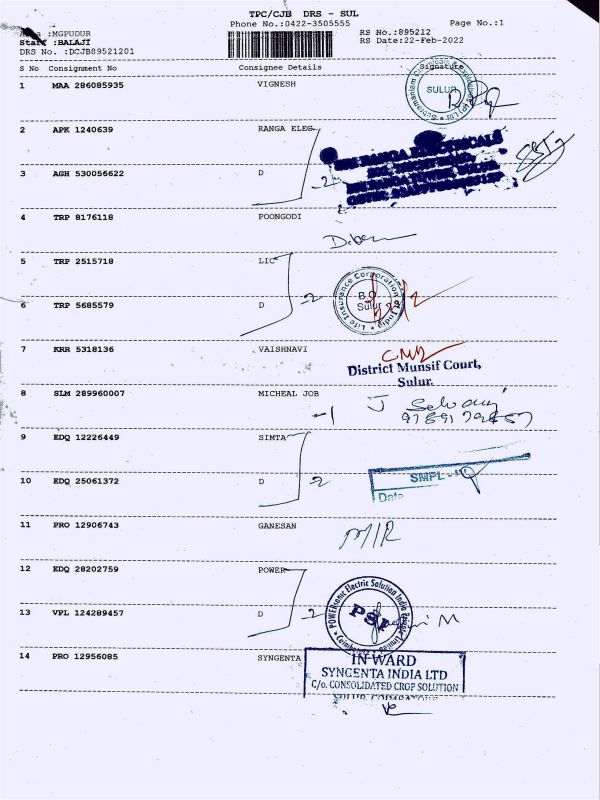 TPC/CJB DRS - SUL
Phone No.:0422-3505555 Page No.:1
:MGPUDUR RS No.:895212
Staff :BALAJI RS Date:22-Feb-2022
DRS No. :DCJB89521201
S No Consignment No Consignee Details Signature
1 MAA 286085935 VIGNESH
SULUR
2 APK 1240639 RANGA ELEC
RANGA ELECTRICALS
3 AGH 530056622 D -2
4 TRP 8176118 POONGODI
5 TRP 2515718 LIC
Life Insurance Corporation India
B.O
Sulur
6 TRP 5685579 D -2
7 KRR 5318136 VAISHNAVI
District Munsif Court,
Sulur.
8 SLM 289960007 MICHEAL JOB
-1 J
9 EDQ 12226449 SIMTA
10 EDQ 25061372 D -2
SMPL -
Date
11 PRO 12906743 GANESAN
M/R
12 EDQ 28202759 POWER
POWERonic Electric Solution India Private Limited
PSI
13 VPL 124289457 D -2
14 PRO 12956085 SYNGENTA
INWARD
SYNGENTA INDIA LTD
C/o. CONSOLIDATED CROP SOLUTION
SULUR COIMBATORE